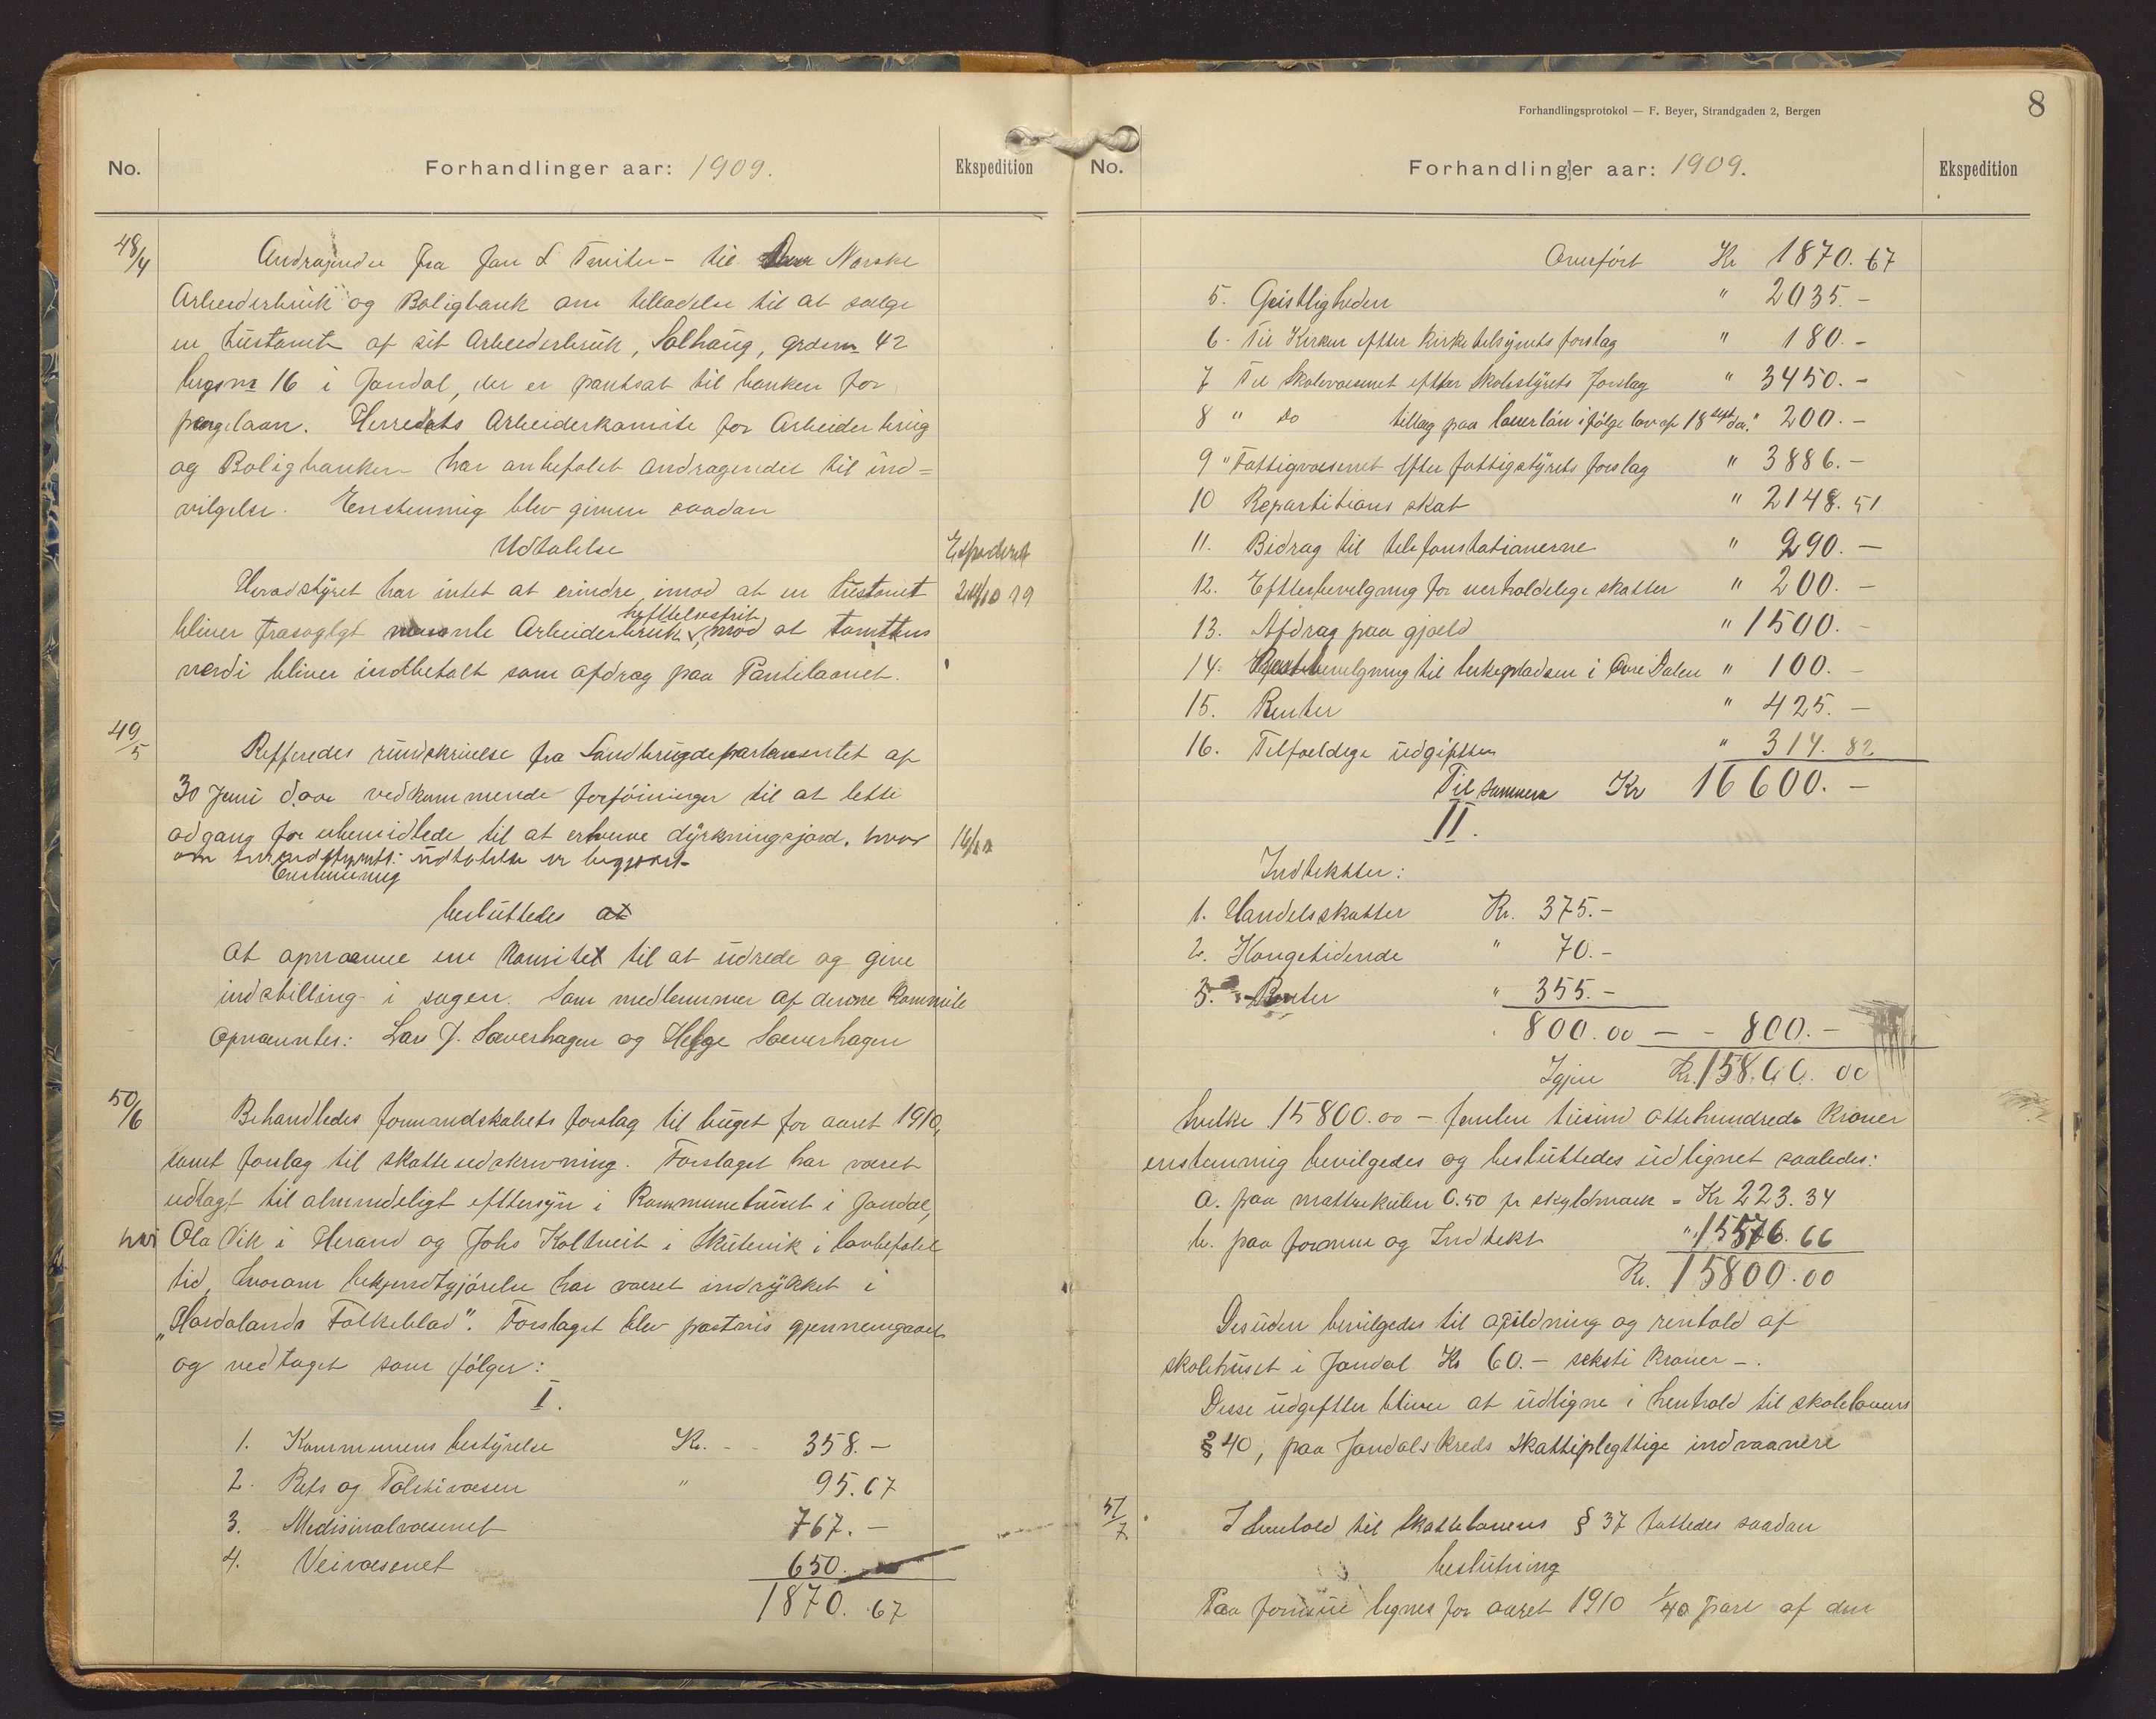 No.
Forhandlinger aar: 1909.
Ekspedition
48/4
Andragende fra Jon L Tveiten - til Den Norske
Arbeiderbruk og Boligbank om tilladelse til at sælge
en hustomt af sit Arbeiderbruk, Solhaug, grdsn 42
brgsnr 16 i Jondal, der er pantsat til banken for
pengelaan. Herredets Arbeiderkomite for Arbeiderbrug
og Boligbanken har anbefalet andragendet til ind=
vilgelse. Enstemmig blev given saadan
Udtalelse
Espederet
Heradstyret har intet at erindre imod at en hustomt
24/10 09
heftelsesfrit
bliver frasolgt nævnte Arbeiderbruk, mod at tomtens
verdi bliver indbetalt som afdrag paa Pantelaanet.
49/5
Refferedes rundskrivelse fra Landbrugdepartementet af
30 Juni d.aar vedkommende forføininger til at lette
adgang for ubemidlede til at erhverve dyrkningsjord, hvor
16/10
om herredstyrets udtalelse er begjært
Enstemmig
besluttedes at
at opnævne en Komite til at udrede og give
indstilling i sagen. Som medlemmer af denne Kommite
opnævntes: Lars J. Sæverhagen og Helge Sæverhagen
50/6
Behandledes formandskabets forslag til buget for aaret 1910,
samt forslag til skatteudskrivning. Forslaget har været
udlagt til almindeligt eftersyn i Kommunehuset i Jondal,
hos Ola Vik i Herand og Johs Koltveit i Skutevik i lovbefalet
tid, hvorom bekjendtgjørelse har været indrykket i
"Hordalands Folkeblad". Forslaget blev postvis gjennemgaaet
og vedtaget som følger:
I.
1. Kommunens bestyrelse Kr. - - 358.-
2. Rets og Politivæsen " 95.67
3. Medisinalvæsenet 767.-
4. Veivæsenet 650.
1870.67
Forhandlingsprotokol — F. Beyer, Strandgaden 2, Bergen
8
No.
Forhandlinger aar: 1909.
Ekspedition
Overført Kr 1870.67
5. Geistligheden " 2035.-
6. Til Kirken efter Kirketilsynets forslag " 180.-
7 Til Skolevæsenet efter Skolestyrets forslag " 3450.-
8 " Do tillæg paa lærerløn ifølge lov af 18 sept d.a. " 200.-
9 " Fattigvæsenet efter fattigstyrets forslag " 3886.-
10 Repartitions skat " 2148.51
11. Bidrag til telefonstationerne " 290.-
12. Efterbevilgning for uerholdelige skatter " 200.-
13. Afdrag paa gjæld " 1500.-
14. Restbevilgning til kirkepladsen i Øvre Dalen " 100.-
15. Renter " 425.-
16. Tilfældige udgifter " 314.82
Til sammen Kr 16600.-
II.
Indtekter:
1. Handelsskatter Kr. 375.-
2. Kongetidende " 70.-
3. Renter " 355.-
800.00 - - 800.-
Igjen Kr. 15800.00
hvilke 15800.00 - femten tusind ottehundrede Kroner
enstemmig bevilgedes og besluttedes udlignet saaledes:
a. paa mattrekulen 0.50 pr skyldmark = Kr 223.34
b. paa formue og Indtekt " 15576.66
Kr. 15800.00
Desuden bevilgedes til opildning og renhold af
skolehuset i Jondal Kr 60.- seksti Kroner -.
Disse udgifter bliver at udligne i henhold til skolelovens
§ 40, paa Jondals Kreds skattepligttige indvaanere
51/7
I henhold til Skattelovens § 37 fattedes saadan
beslutning
Paa formue lignes for aaret 1910 1/40 part af den